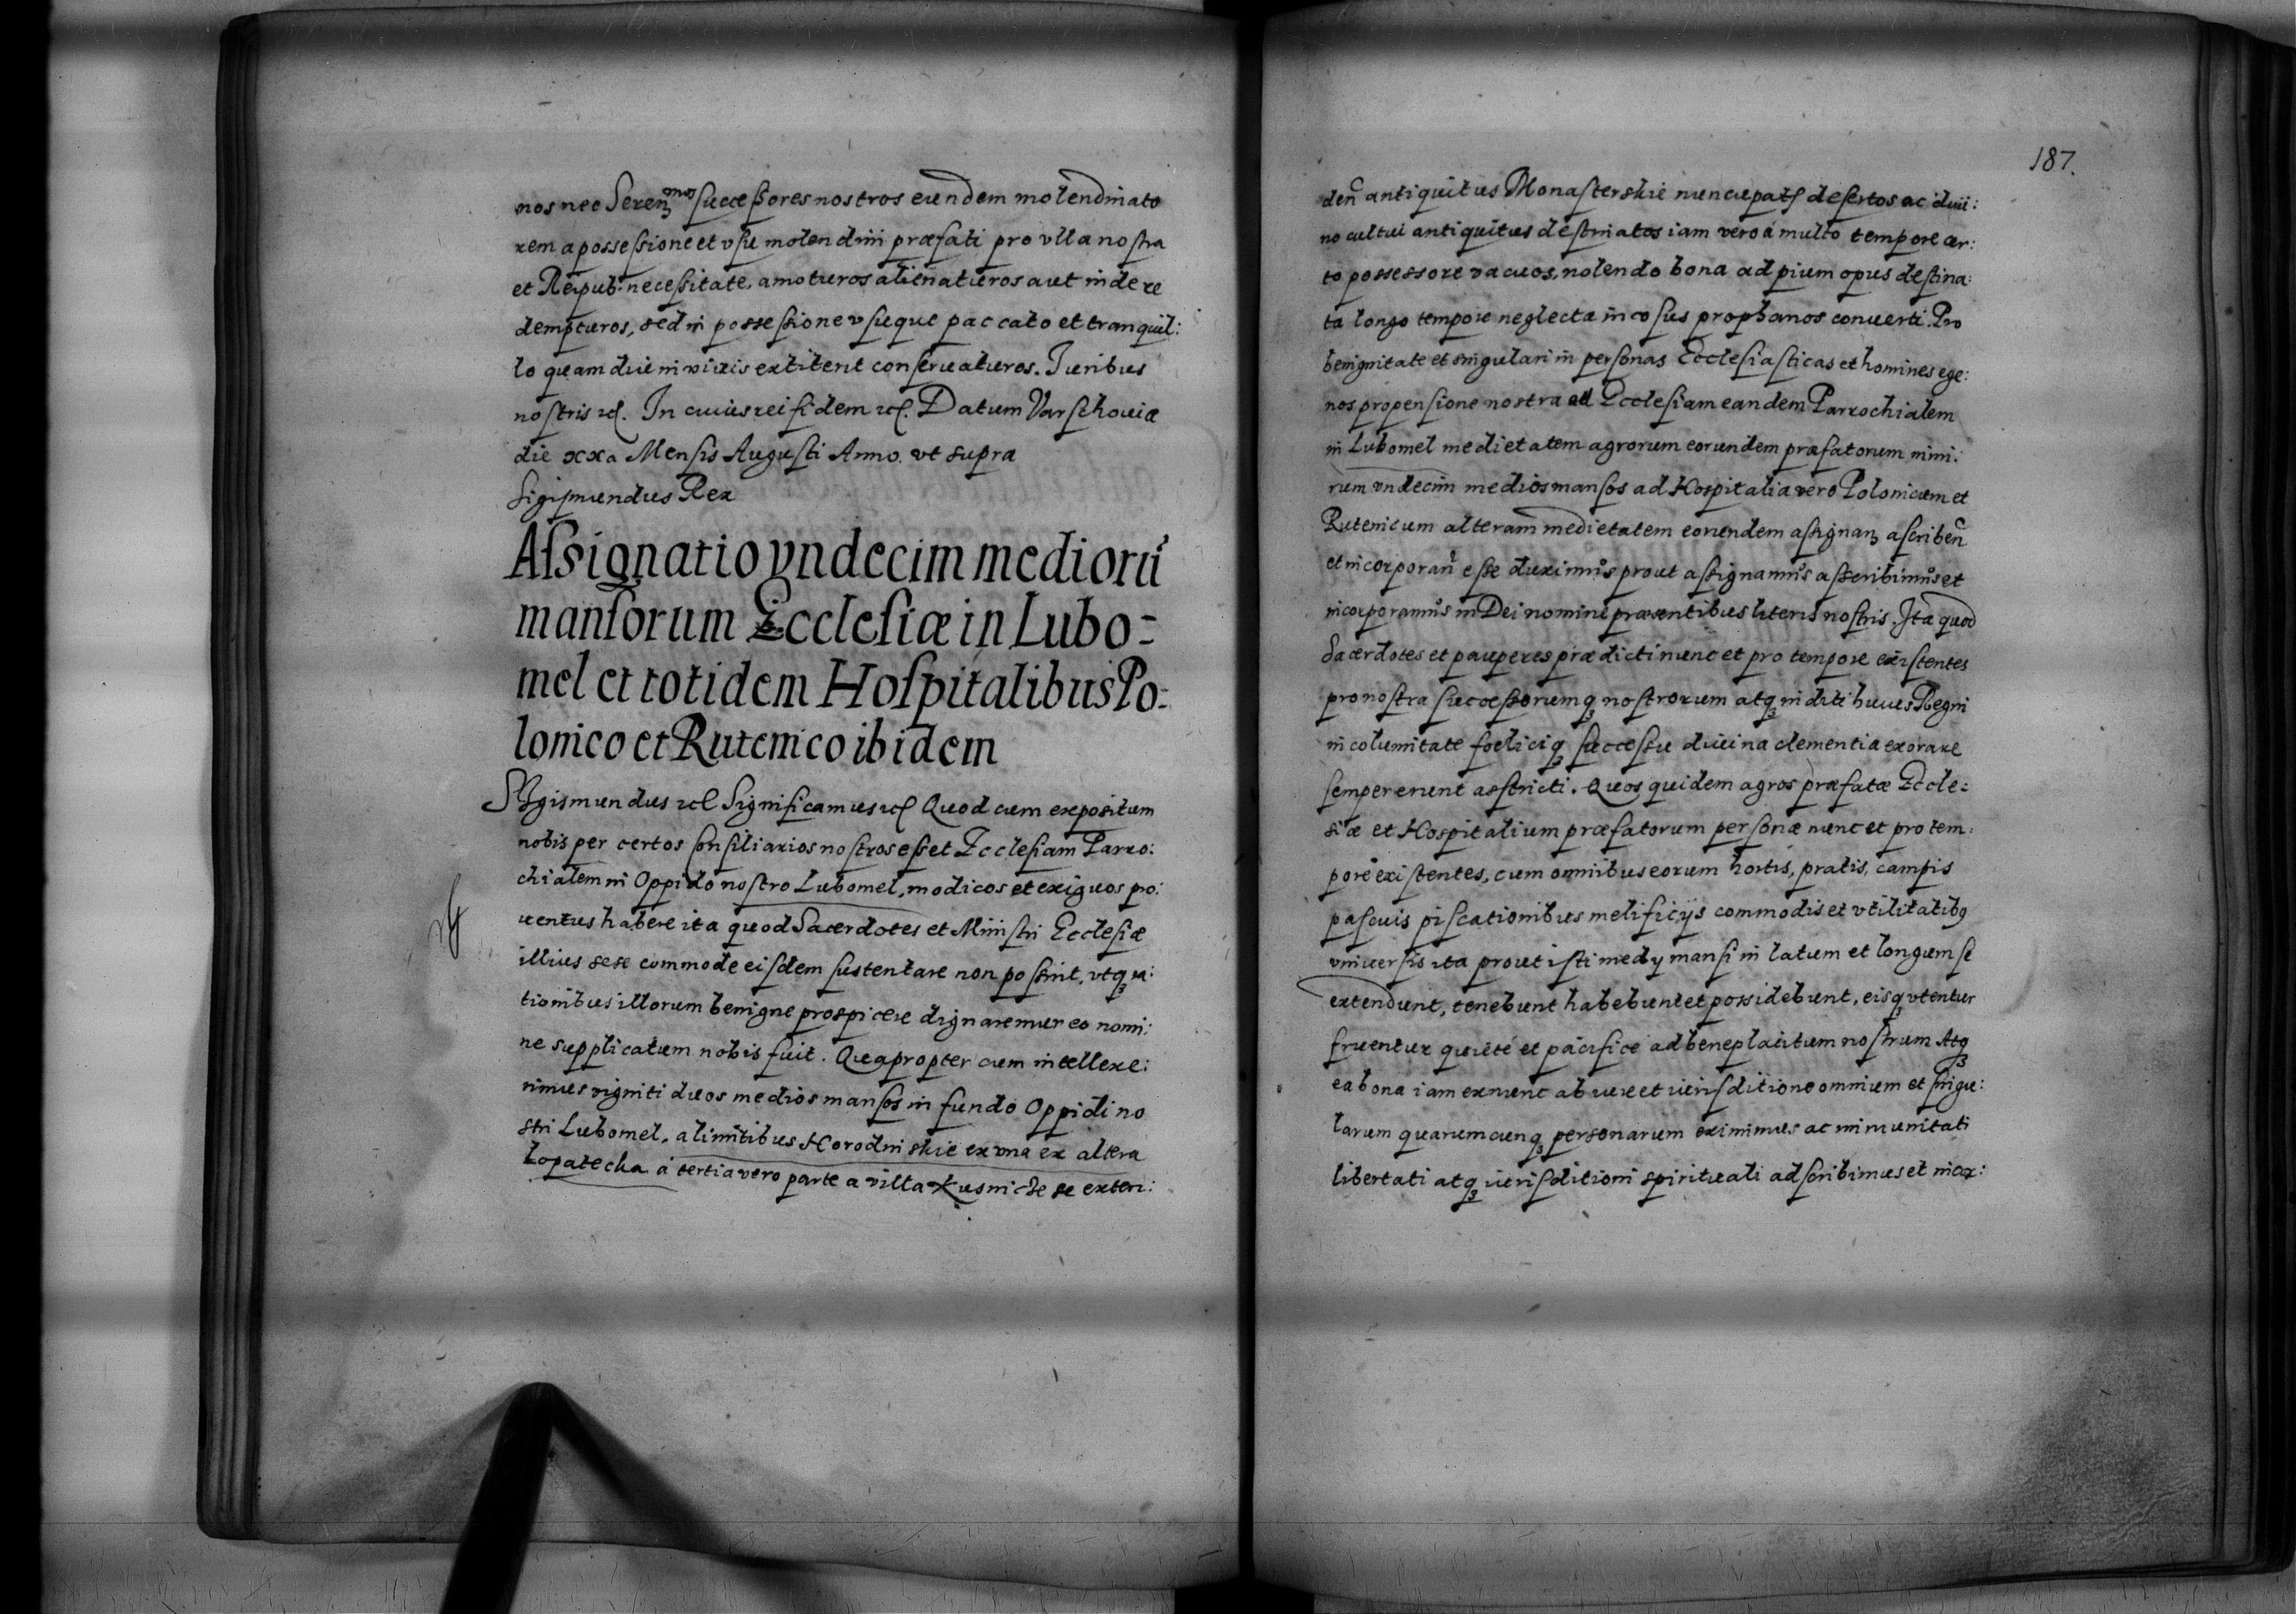 nos nec Seren₃mos successores nostros eundem molendinato
rem a possessione et vsu molendini præfati pro vlla nostra
et Reipub. necessitate, amoturos alienaturos aut inde re
dempturos, sed in possessione vsuque paccato et tranquil:
lo quamdiu in viuis extiterit conseruaturos. Iuribus
nostris etc. In cuius rei fidem etc. Datum Varschouiæ
die xxa Mensis Augusti Anno. vt supra
Sigismundus Rex
Assignatio vndecim mediorũ
mansorum Ecclesiæ in Lubo=
mel et totidem Hospitalibus Po=
lonico et Rutenico ibidem
Sigismundus etc Significamus etc Quod cum expositum
nobis per certos Consiliarios nostros esset Ecclesiam Parro:
chialem in Oppido nostro Lubomel, modicos et exiguos pro:
uentus habere ita quod Sacerdotes et Ministri Ecclesiæ
illius sese commode eisdem sustentare non possint, vtq₃ ra:
tionibus illorum benigne prospicere dignaremur eo nomi:
ne supplicatum nobis fuit. Quapropter cum intellexe:
rimus viginti duos medios mansos in fundo Oppidi no
stri Lubomel, a limitibus Horodinskie ex vna ex altera
Lopatecka a tertia vero parte a villa Kusnicze se exten:
187.
deñ antiquitus Monasterskie nuncupatos desertos ac diui:
no cultui antiquitus destinatos iam vero a multo tempore cer:
to possessore vacuos, nolendo bona ad pium opus destina:
ta longo tempore neglecta in vsus prophanos conuerti. Pro
benignitate et singulari in personas Ecclesiasticas et homines ege:
nos propensione nostra ad Ecclesiam eandem Parrochialem
in Lubomel medietatem agrorum eorundem præfatorum nimi:
rum vndecim medios mansos ad Hospitalia vero Polonicum et
Rutenicum alteram medietatem eorundem assignan₃ ascribeñ
et incorporañ esse duximus prout assignamus asscribimus et
incorporamus in Dei nomine præsentibus literis nostris. Ita quod
Sacerdotes et pauperes prædicti nunc et pro tempore existentes
pro nostra successorumq₃ nostrorum atq₃ inditi huius Regni
incolumitate foeliciq₃ successu diuina clementia exorare
semper erunt asstricti. Quos quidem agros præfatæ Eccle:
siæ et Hospitalium præfatorum personæ nunc et pro tem:
pore existentes, cum omnibus eorum hortis, pratis, campis
pascuis piscationibus melificijs commodis et vtilitatibq
vniuersis ita prout isti medij mansi in latum et longum se
extendunt, tenebunt habebunt et possidebunt, eisq₃ vtentur
fruentur quiete et pacifice ad beneplacitum nostrum Atq₃
ea bona iam ex nunc ab iure et iurisditione omnium et singu:
larum quarumcunq₃ personarum eximimus ac immunitati
libertati atq₃ iurisditioni spirituali adscribimus et incor: